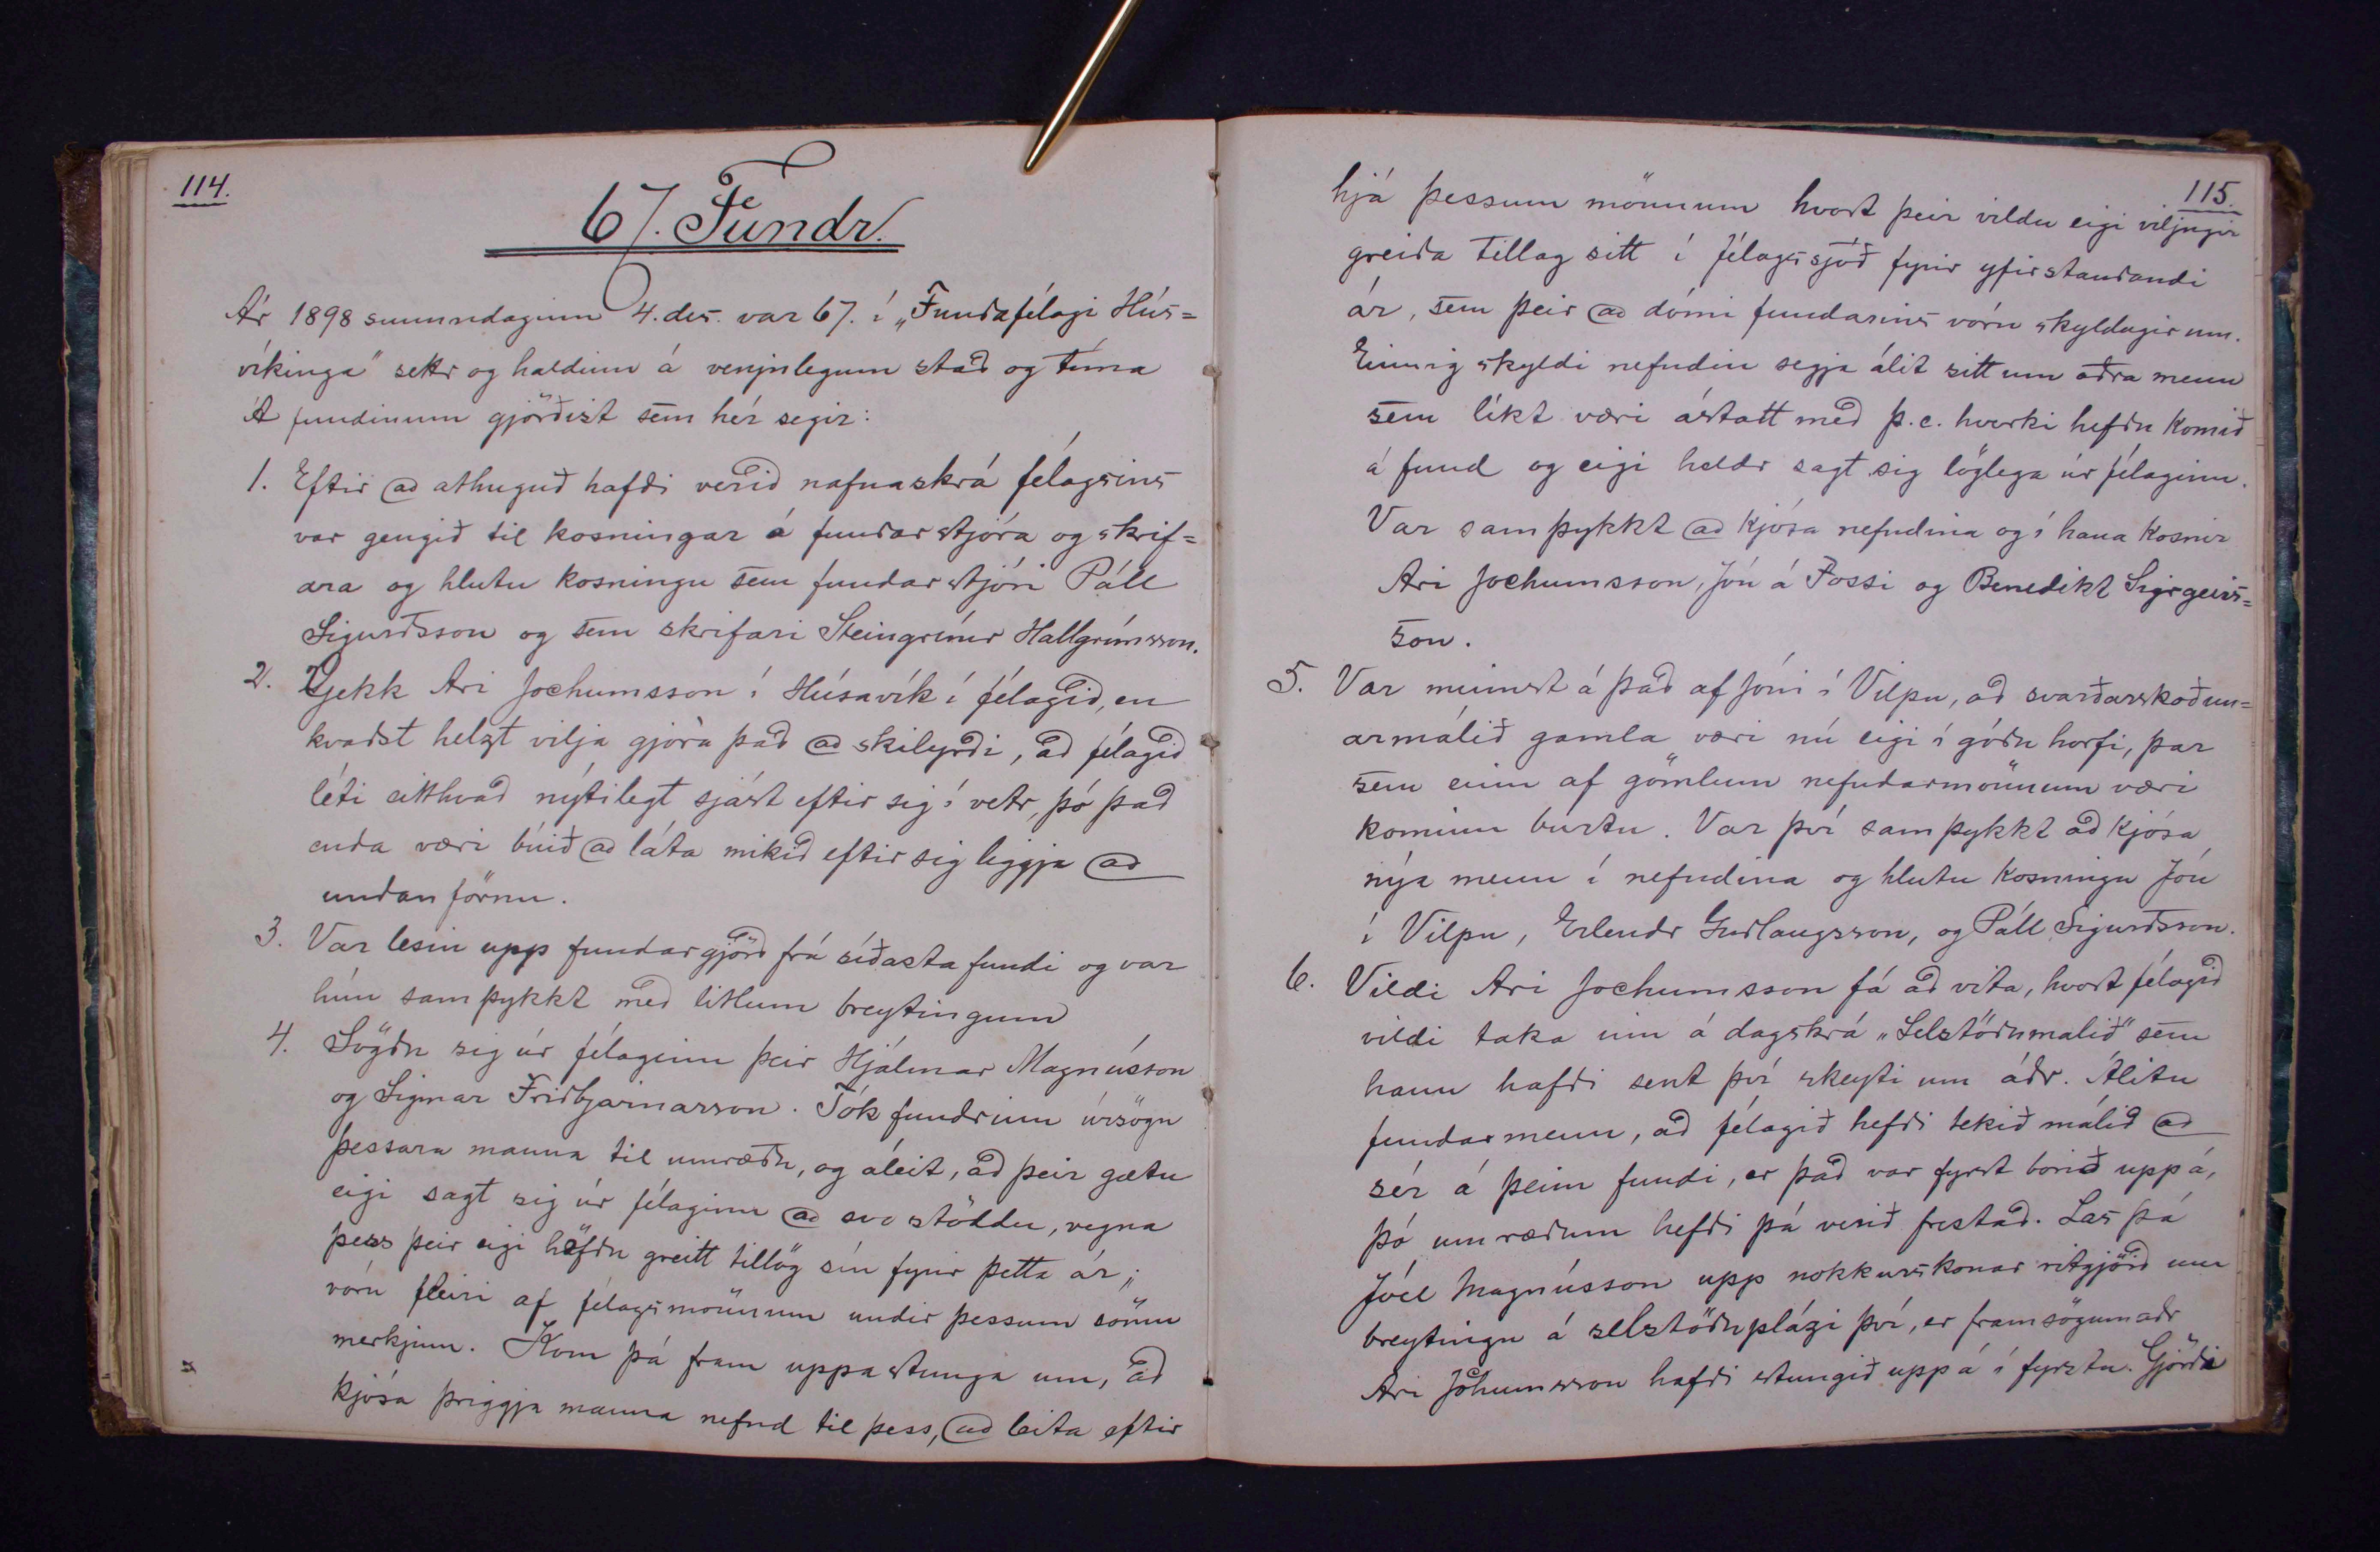 114.
67. Fundr.
Ár 1898 sunnudaginn 4. des. var 67. í „Fundafélagi Hús=
víkinga" settr og haldinn á venjulegum stað og tíma
Á fundinum gjörðist sem hér segir:
1. Eftir að athuguð hafði verið nafnaskrá félagsins
var gengið til kosningar á fundarstjóra og skrif=
ara og hlutu kosningu sem fundarstjóri Páll
Sigurðsson og sem skrifari Steingrímr Hallgrímsson.
2. Gekk Ari Jochumsson í Húsavík í félagið, en
kvaðst helzt vilja gjöra það að skilyrði, að félagið
léti eitthvað nýtilegt sjást eftir sig í vetr, þó það
enda væri búið að láta mikið eftir sig liggja að
undanförnu.
3. Var lesin upp fundargjörð frá síðasta fundi og var
hún samþykkt með litlum breytingum
4. Sögðu sig úr félaginu þeir Hjálmar Magnússon
og Sigmar Friðbjarnarson. Tók fundrinn úrsögn
þessara manna til umræðu, og áleit, að þeir gætu
eigi sagt sig úr félaginu að svo stöddu, vegna
þess þeir eigi höfðu greitt tillög sín fyrir þetta ár;
vóru fleiri af félagsmönnum undir þessum sömu
merkjum. Kom þá fram uppastunga um, að
kjósa þriggja manna nefnd til þess, að leita eftir
115.
hjá þessum mönnum hvort þeir vildu eigi viljugir
greiða tillag sitt í félagssjóð fyrir yfirstandandi
ár, sem þeir að dómi fundarins vóru skyldugir um.
Einnig skyldi nefndin segja álit sitt um aðra menn
sem líkt væri ástatt með þ.e. hverki hefðu komið
á fund og eigi heldr sagt sig löglega úr félaginu.
Var samþykkt að kjósa nefndina og í hana kosnir
Ari Jochumsson, Jón á Fossi og Benedikt Sigrgeirs=
son.
5. Var minnst á það af Jóni í Vilpu, að svarðarskoðun=
armálið gamla væri nú eigi í góðu horfi, þar
sem einn af gömlum nefndarmönnum væri
kominn burtu. Var því samþykkt að kjósa
nýja menn í nefndina og hlutu kosningu Jón
í Vilpu, Erlendr Guðlaugsson, og Páll Sigurðsson.
6. Vildi Ari Jochumsson fá að vita, hvort félagið
vildi taka inn á dagskrá „Selstöðumalið" sem
hann hafði sent því skeyti um áðr. Álitu
fundarmenn, að félagið hefði tekið málið að
sér á þeim fundi, er það var fyrst borið upp á,
þó umræðum hefði þá verið frestað. Las þá
Jóel Magnússon upp nokkurskonar ritgjörð um
breytingu á selstöðuplázi því, er framsögumaðr
Ari Jóhumsson hafði stungið upp á í fyrstu. Gjörði